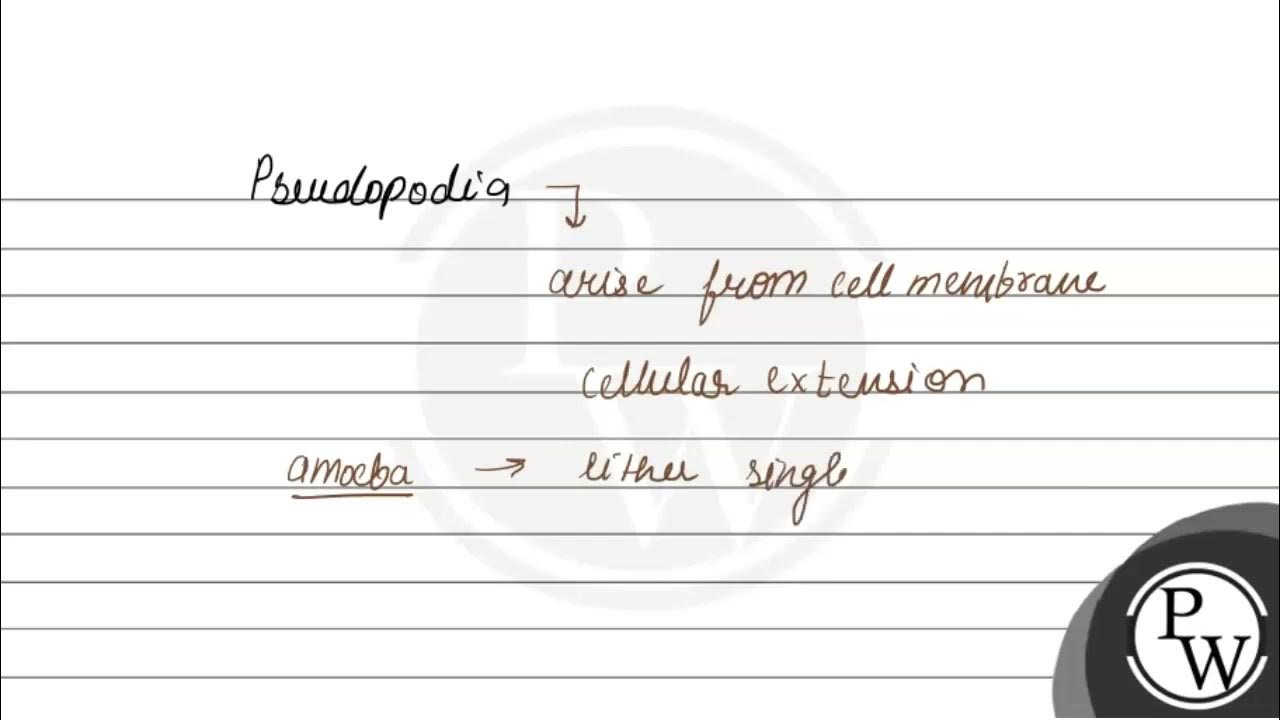 Pseudopodia
arise from cell membrane
cellular extension
amoeba → either single
PW
PW